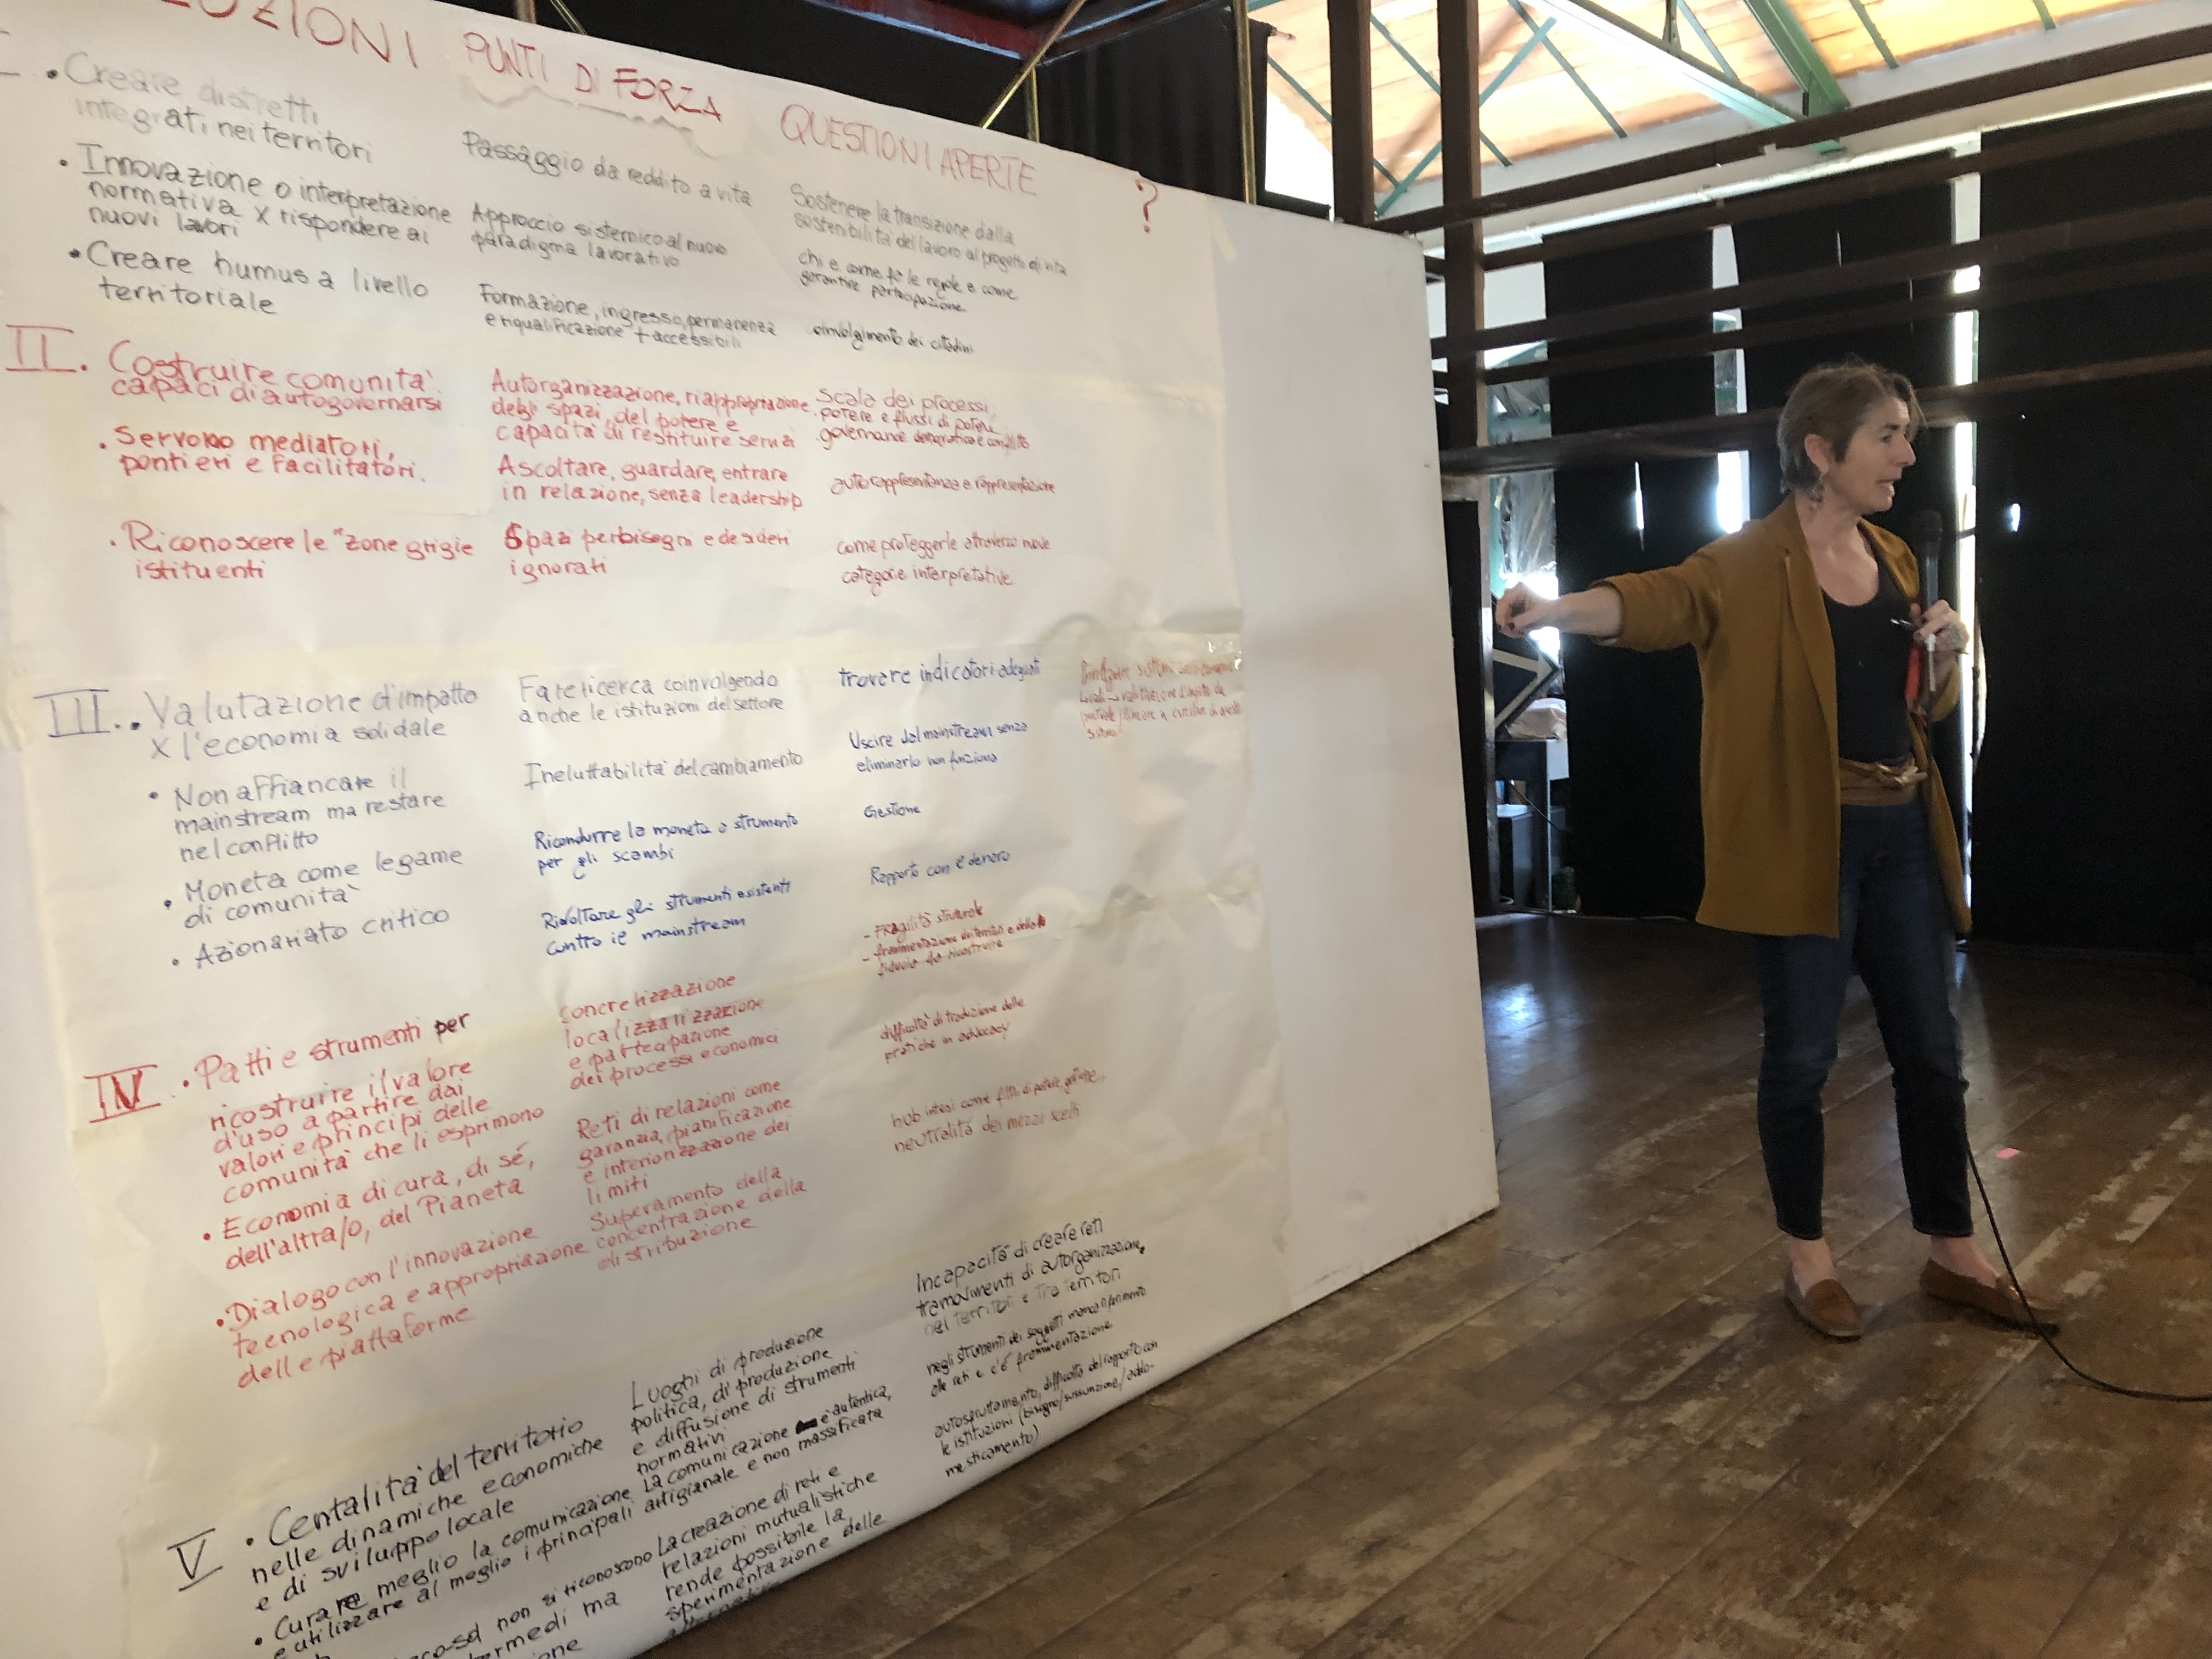 PUNTI DI FORZA
QUESTIONI APERTE
?
• Creare distretti
integrati nei territori
• Innovazione o interpretazione
normativa x rispondere ai
nuovi lavori
• Creare humus a livello
territoriale
Passaggio da reddito a vita
Approccio sistemico al nuovo
paradigma lavorativo
Formazione, ingresso, permanenza
e riqualificazione + accessibili
Sostenere la transizione dalla
sostenibilità del lavoro al progetto di vita
chi e come fa le regole e come
garantire partecipazione
coinvolgimento dei cittadini
II. Costruire comunità
capaci di autogovernarsi
• Servono mediatori,
pontieri e facilitatori.
• Riconoscere le "zone grigie
istituenti
Autorganizzazione, riappropriazione
degli spazi, del potere e
capacità di restituire servizi
Ascoltare, guardare, entrare
in relazione, senza leadership
Spazi per bisogni e desideri
ignorati
Scala dei processi,
potere e flussi di potere
governance democratica e conflitto
autorappresentanza e rappresentazione
come proteggerle attraverso nuove
categorie interpretative
III. • Valutazione d'impatto
x l'economia solidale
• Non affiancare il
mainstream ma restare
nel conflitto
• Moneta come legame
di comunità
• Azionariato critico
Fare ricerca coinvolgendo
anche le istituzioni del settore
Ineluttabilità del cambiamento
Ricondurre la moneta a strumento
per gli scambi
Rivoltare gli strumenti esistenti
contro il mainstream
trovare indicatori adeguati
Uscire dal mainstream senza
eliminarlo non funziona
Gestione
Rapporto con il denaro
sistemi
IV • Patti e strumenti per
ricostruire il valore
d'uso a partire dai
valori e principi delle
comunità che li esprimono
• Economia di cura, di sé,
dell'altra/o, del Pianeta
• Dialogo con l'innovazione
tecnologica e appropriazione
delle piattaforme
concretizzazione
localizzalizzazione
e partecipazione
dei processi economici
Reti di relazioni come
garanzia, pianificazione
e interiorizzazione dei
limiti
Superamento della
concentrazione della
distribuzione
- Fragilità strutturale
- frammentazione dei territori e della
fiducia da ricostruire
difficoltà di traduzione delle
pratiche in advocacy
hub intesi come filtri di potere,
neutralità dei mezzi scelti
V • Centalità del territorio
nelle dinamiche economiche
e di sviluppo locale
• Curare meglio la comunicazione
e utilizzare al meglio i principali
non si riconoscono
ma
Luoghi di produzione
politica, di produzione
e diffusione di strumenti
normativi
La comunicazione è autentica,
artigianale e non massificata
La creazione di reti e
relazioni mutualistiche
rende possibile la
sperimentazione delle
Incapacità di creare reti
tra movimenti di autorganizzazione
nei territori e tra territori
negli strumenti dei soggetti manca riferimento
alle reti e c'è frammentazione
autosfruttamento, difficoltà del rapporto con
le istituzioni (bisogno/sussunzione/addo-
mesticamento)